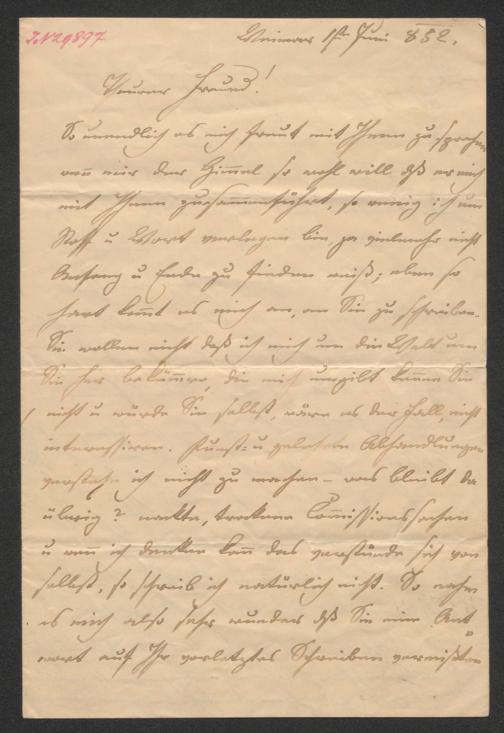 I.N 29897
Weimar 1st Juni 852.
Theurer Freund!
So unendlich es mich freut mit Ihnen zu sprechen
wenn mir der Himmel so wohl will dß er mich
mit Ihnen zusammenführt, so wenig ich um
Stoff u Wort verlegen bin, ja vielmehr nicht
Anfang u Ende zu finden weiß; eben so
hart kommt es mich an, an Sie zu schreiben.
Sie wollen nicht daß ich mich um die Welt um
Sie her bekümmre, die mich umgibt kennen Sie
nicht u würde Sie selbst, wäre es der Fall, nicht
interessiren. Kunst- u gelehrte Abhandlungen
verstehe ich nicht zu machen – was bleibt da
übrig? nackte, trockene Commissionssachen
u wenn ich denken kann das verstünde sich von
selbst, so schreib ich natürlich nicht. So nahm
es mich also sehr wunder dß Sie eine Ant
wort auf Ihr vorletztes Schreiben vermißten